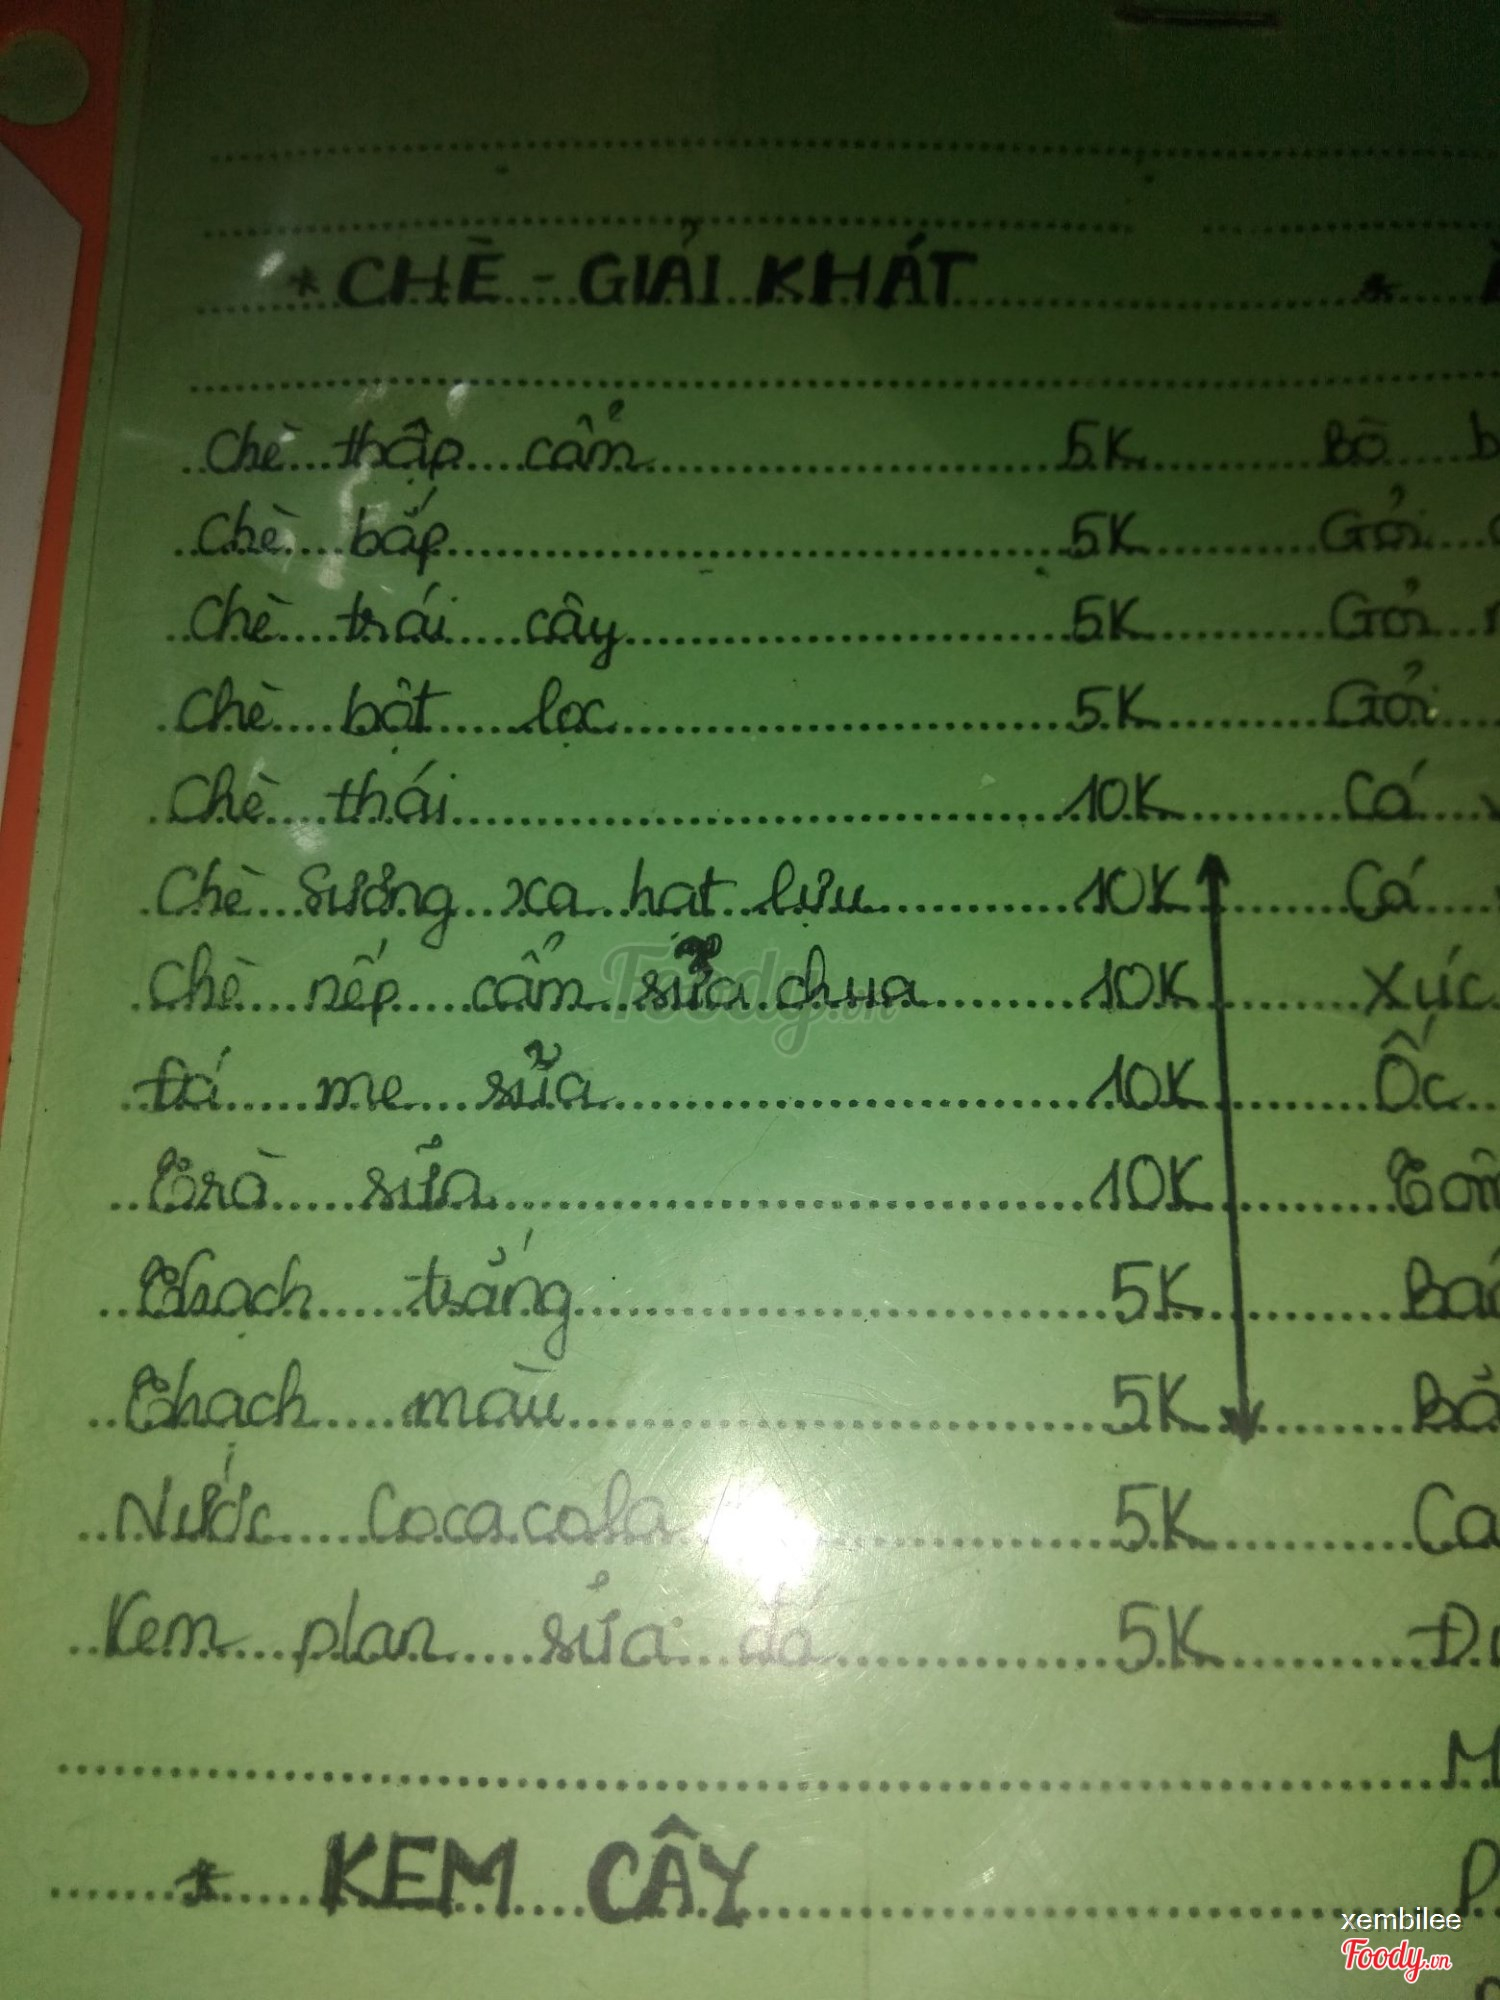 * CHÈ - GIẢI KHÁT *
Chè thập cẩm 5K Bò b
Chè bắp 5K Gỏi
Chè trái cây 5K Gỏi
Chè bột lọc 5K Gỏi
Chè thái 10K Cá
Chè Sương xa hạt lựu 10K Cá
Chè nếp cẩm sữa chua 10K Xúc
đá me sữa 10K Ốc
Trà sữa 10K
Thạch trắng 5K
Thạch màu 5K
Nước Cocacola 5K Ca
Kem plan sữa đá 5K
* KEM CÂY
Foody.vn
xembilee
Foody.vn